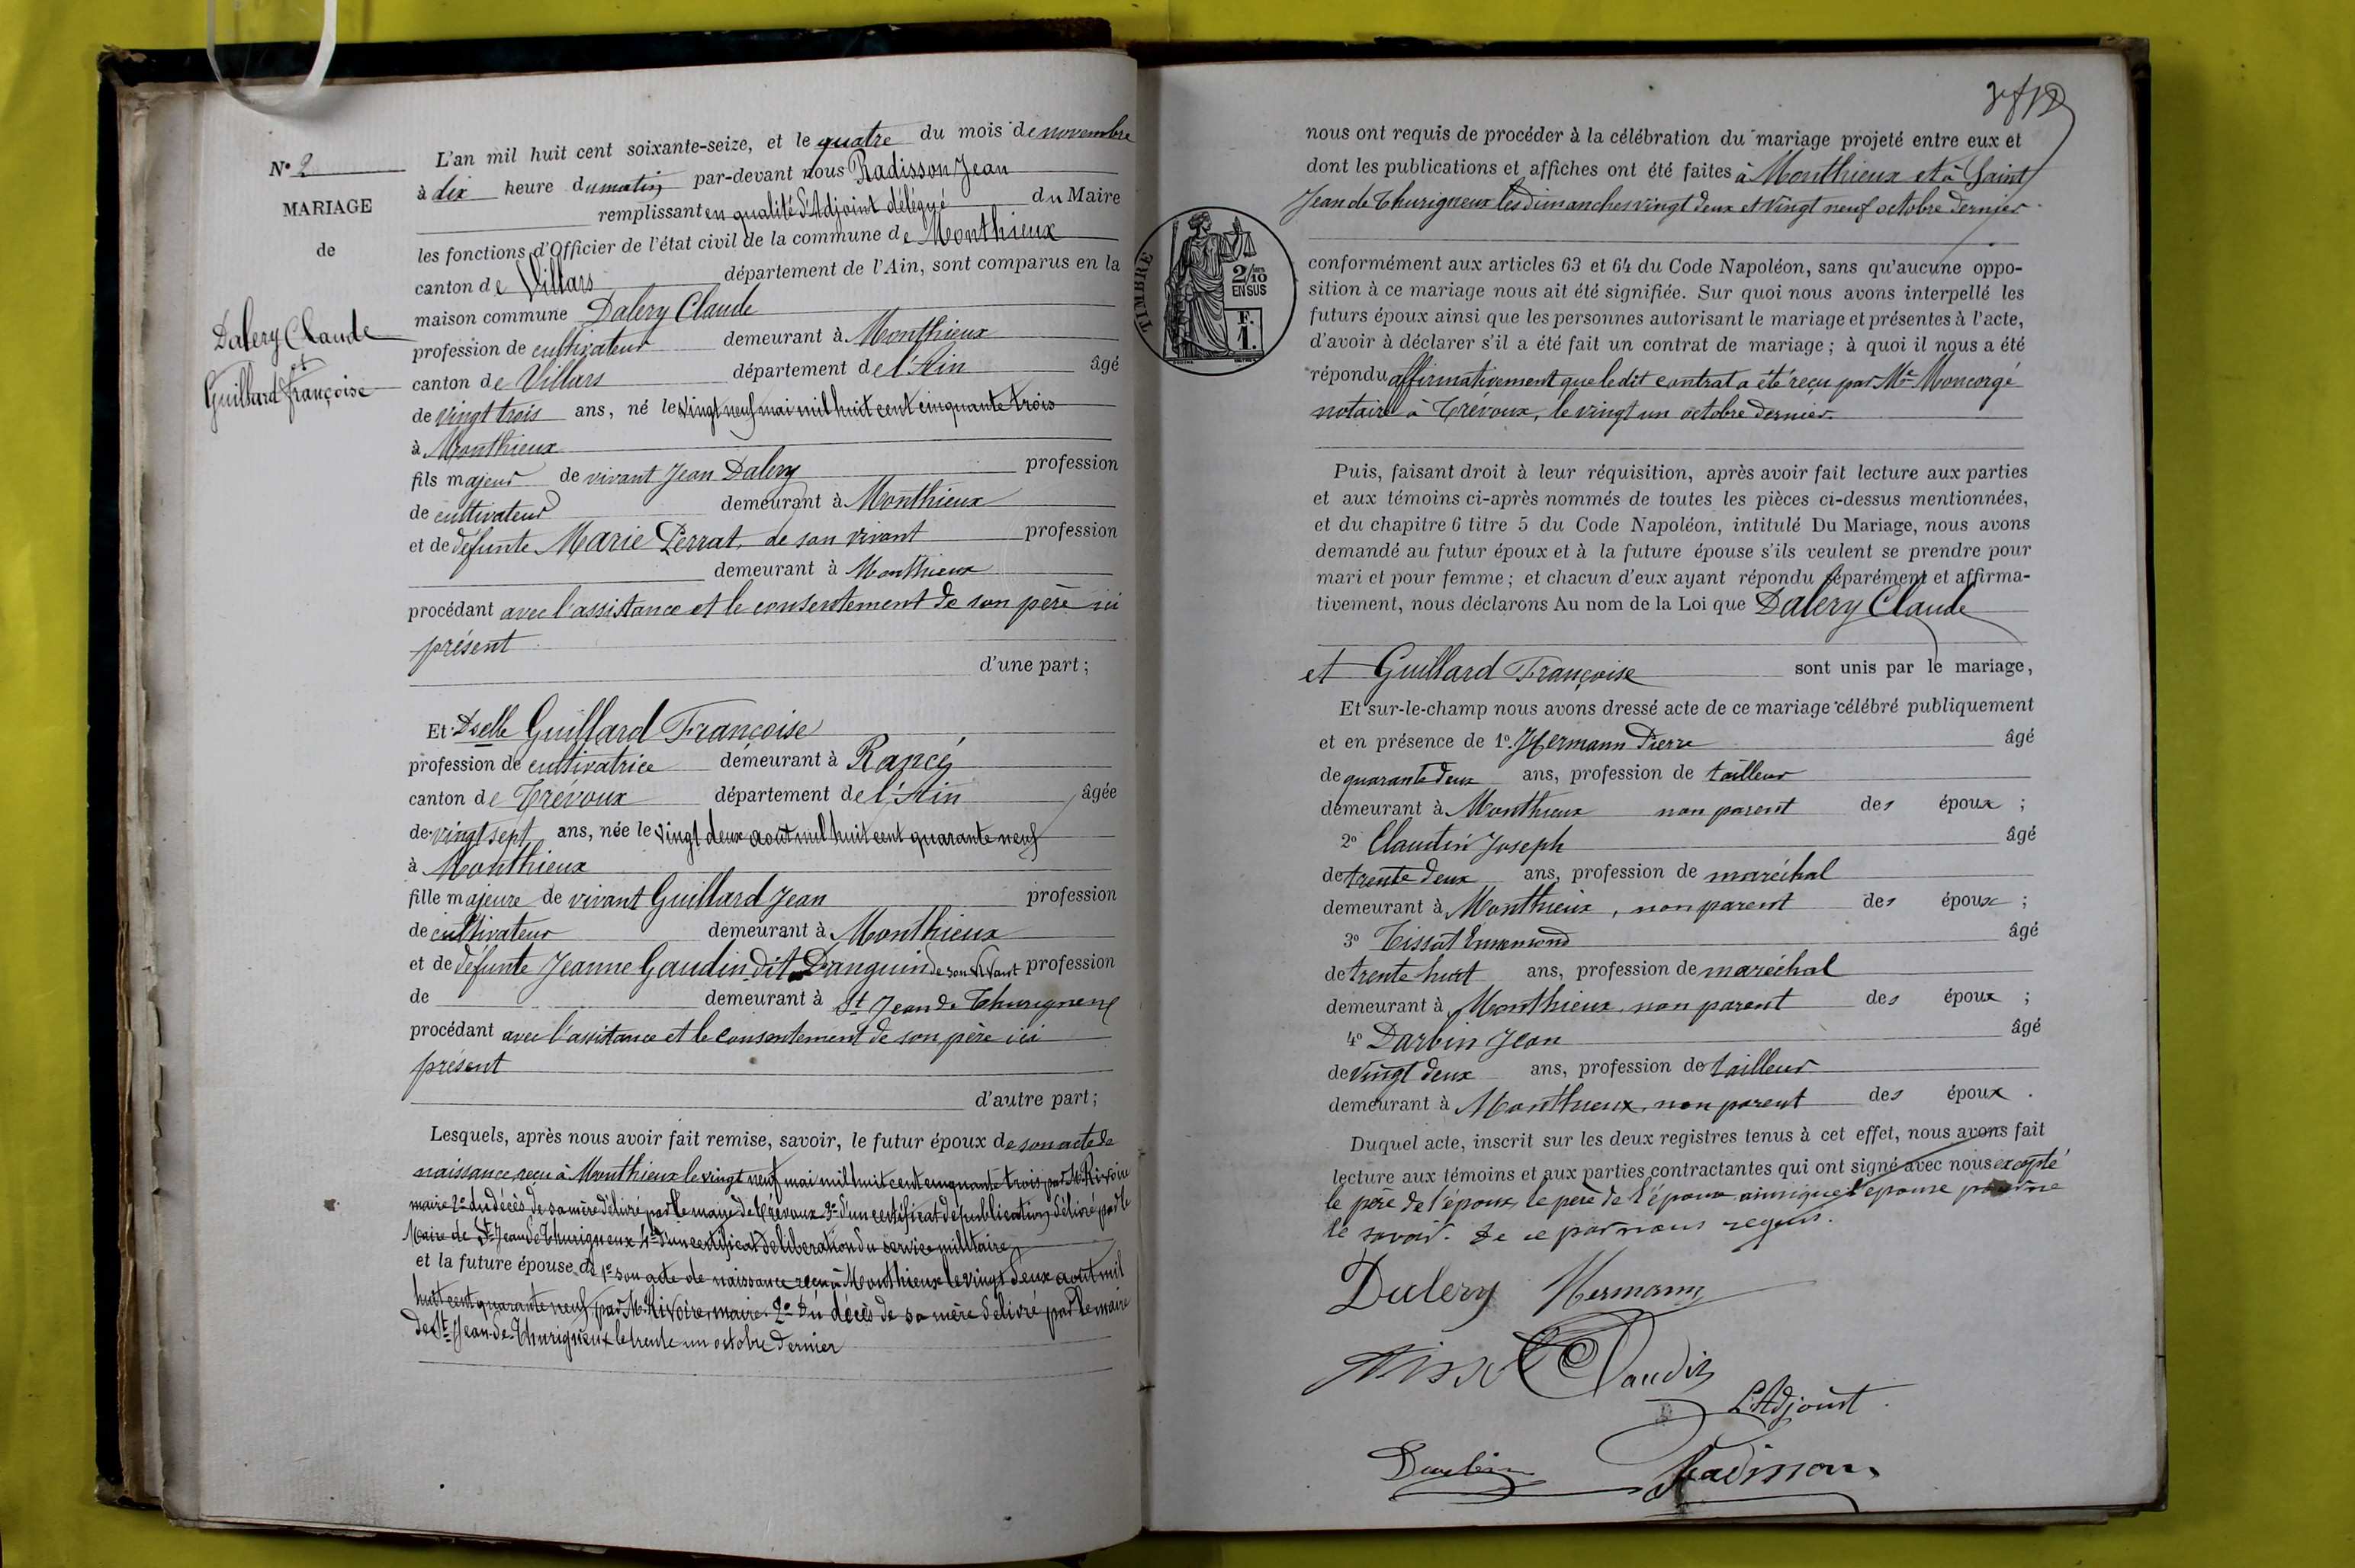 N° 2
MARIAGE
de
Dalery Claude
et
Guillard françoise
L'an mil huit cent soixante-seize, et le quatre du mois de novembre
à dix heure du matin par-devant nous Radisson Jean
remplissant en qualité d'Adjoint délégué du Maire
les fonctions d'Officier de l'état civil de la commune de Monthieux
canton de Villars département de l'Ain, sont comparus en la
maison commune Dalery Claude
profession de cultivateur demeurant à Monthieux
canton de Villars département de l'Ain âgé
de vingt trois ans, né le vingt neuf mai mil huit cent cinquante trois
à Monthieux
fils majeur de vivant Jean Dalery profession
de cultivateur demeurant à Monthieux
et de défunte Marie Perrat, de son vivant profession
demeurant à Monthieux
procédant avec l'assistance et le consentement de son père ici
présent
d'une part ;
Et Dselle Guillard Françoise
profession de cultivatrice demeurant à Rancé
canton de Trévoux département de l'Ain âgée
de vingt sept ans, née le vingt deux aout mil huit cent quarante neuf
à Monthieux
fille majeure de vivant Guillard Jean profession
de cultivateur demeurant à Monthieux
et de défunte Jeanne Gaudin dit Danguin de son vivant profession
de demeurant à St Jean de Thurigneux
procédant avec l'assistance et le consentement de son père ici
présent
d'autre part ;
Lesquels, après nous avoir fait remise, savoir, le futur époux de son acte de
naissance reçu à Monthieux le vingt neuf mai mil huit cent cinquante trois par Mr Rivoire
maire 2° du décès de sa mère délivré par le maire de Trévoux 3° d'un certificat de publication délivré par le
Maire de St Jean de Thurigneux 4° d'un certificat de liberation du service militaire
et la future épouse de 1° son acte de naissance reçu à Monthieux le vingt deux aout mil
huit cent quarante neuf par M. Rivoire, maire. 2° Du décès de sa mère délivré par le maire
de St Jean de Thurigneux le trente un octobre dernier
nous ont requis de procéder à la célébration du mariage projeté entre eux et
dont les publications et affiches ont été faites à Monthieux et à Saint
Jean de Thurigneux les dimanches vingt deux et vingt neuf octobre dernier
TIMBRE
2/10
EN SUS
F.
1.
conformément aux articles 63 et 64 du Code Napoléon, sans qu'aucune oppo-
sition à ce mariage nous ait été signifiée. Sur quoi nous avons interpellé les
futurs époux ainsi que les personnes autorisant le mariage et présentes à l'acte,
d'avoir à déclarer s'il a été fait un contrat de mariage ; à quoi il nous a été
répondu affirmativement que le dit contrat a été reçu par Me Moncorgé
notaire à Trévoux, le vingt un octobre dernier.
Puis, faisant droit à leur réquisition, après avoir fait lecture aux parties
et aux témoins ci-après nommés de toutes les pièces ci-dessus mentionnées,
et du chapitre 6 titre 5 du Code Napoléon, intitulé Du Mariage, nous avons
demandé au futur époux et à la future épouse s'ils veulent se prendre pour
mari et pour femme ; et chacun d'eux ayant répondu séparément et affirma-
tivement, nous déclarons Au nom de la Loi que Dalery Claude
et Guillard Françoise sont unis par le mariage,
Et sur-le-champ nous avons dressé acte de ce mariage célébré publiquement
et en présence de 1° Hermann Pierre âgé
de quarante deux ans, profession de tailleur
demeurant à Monthieux non parent des époux ;
2° Claudin Joseph âgé
de trente deux ans, profession de maréchal
demeurant à Monthieux, non parent des époux ;
3° Tissot Ennemond âgé
de trente huit ans, profession de maréchal
demeurant à Monthieux, non parent des époux ;
4° Darbin Jean âgé
de vingt deux ans, profession de tailleur
demeurant à Monthieux, non parent des époux .
Duquel acte, inscrit sur les deux registres tenus à cet effet, nous avons fait
lecture aux témoins et aux parties contractantes qui ont signé avec nous excepté
le père de l'époux, le père de l'épouse ainsi que l'épouse pour ne
le savoir. De ce par nous requis.
Dalery Hermann
Tissot Claudin
L'Adjoint
Darbin Radisson